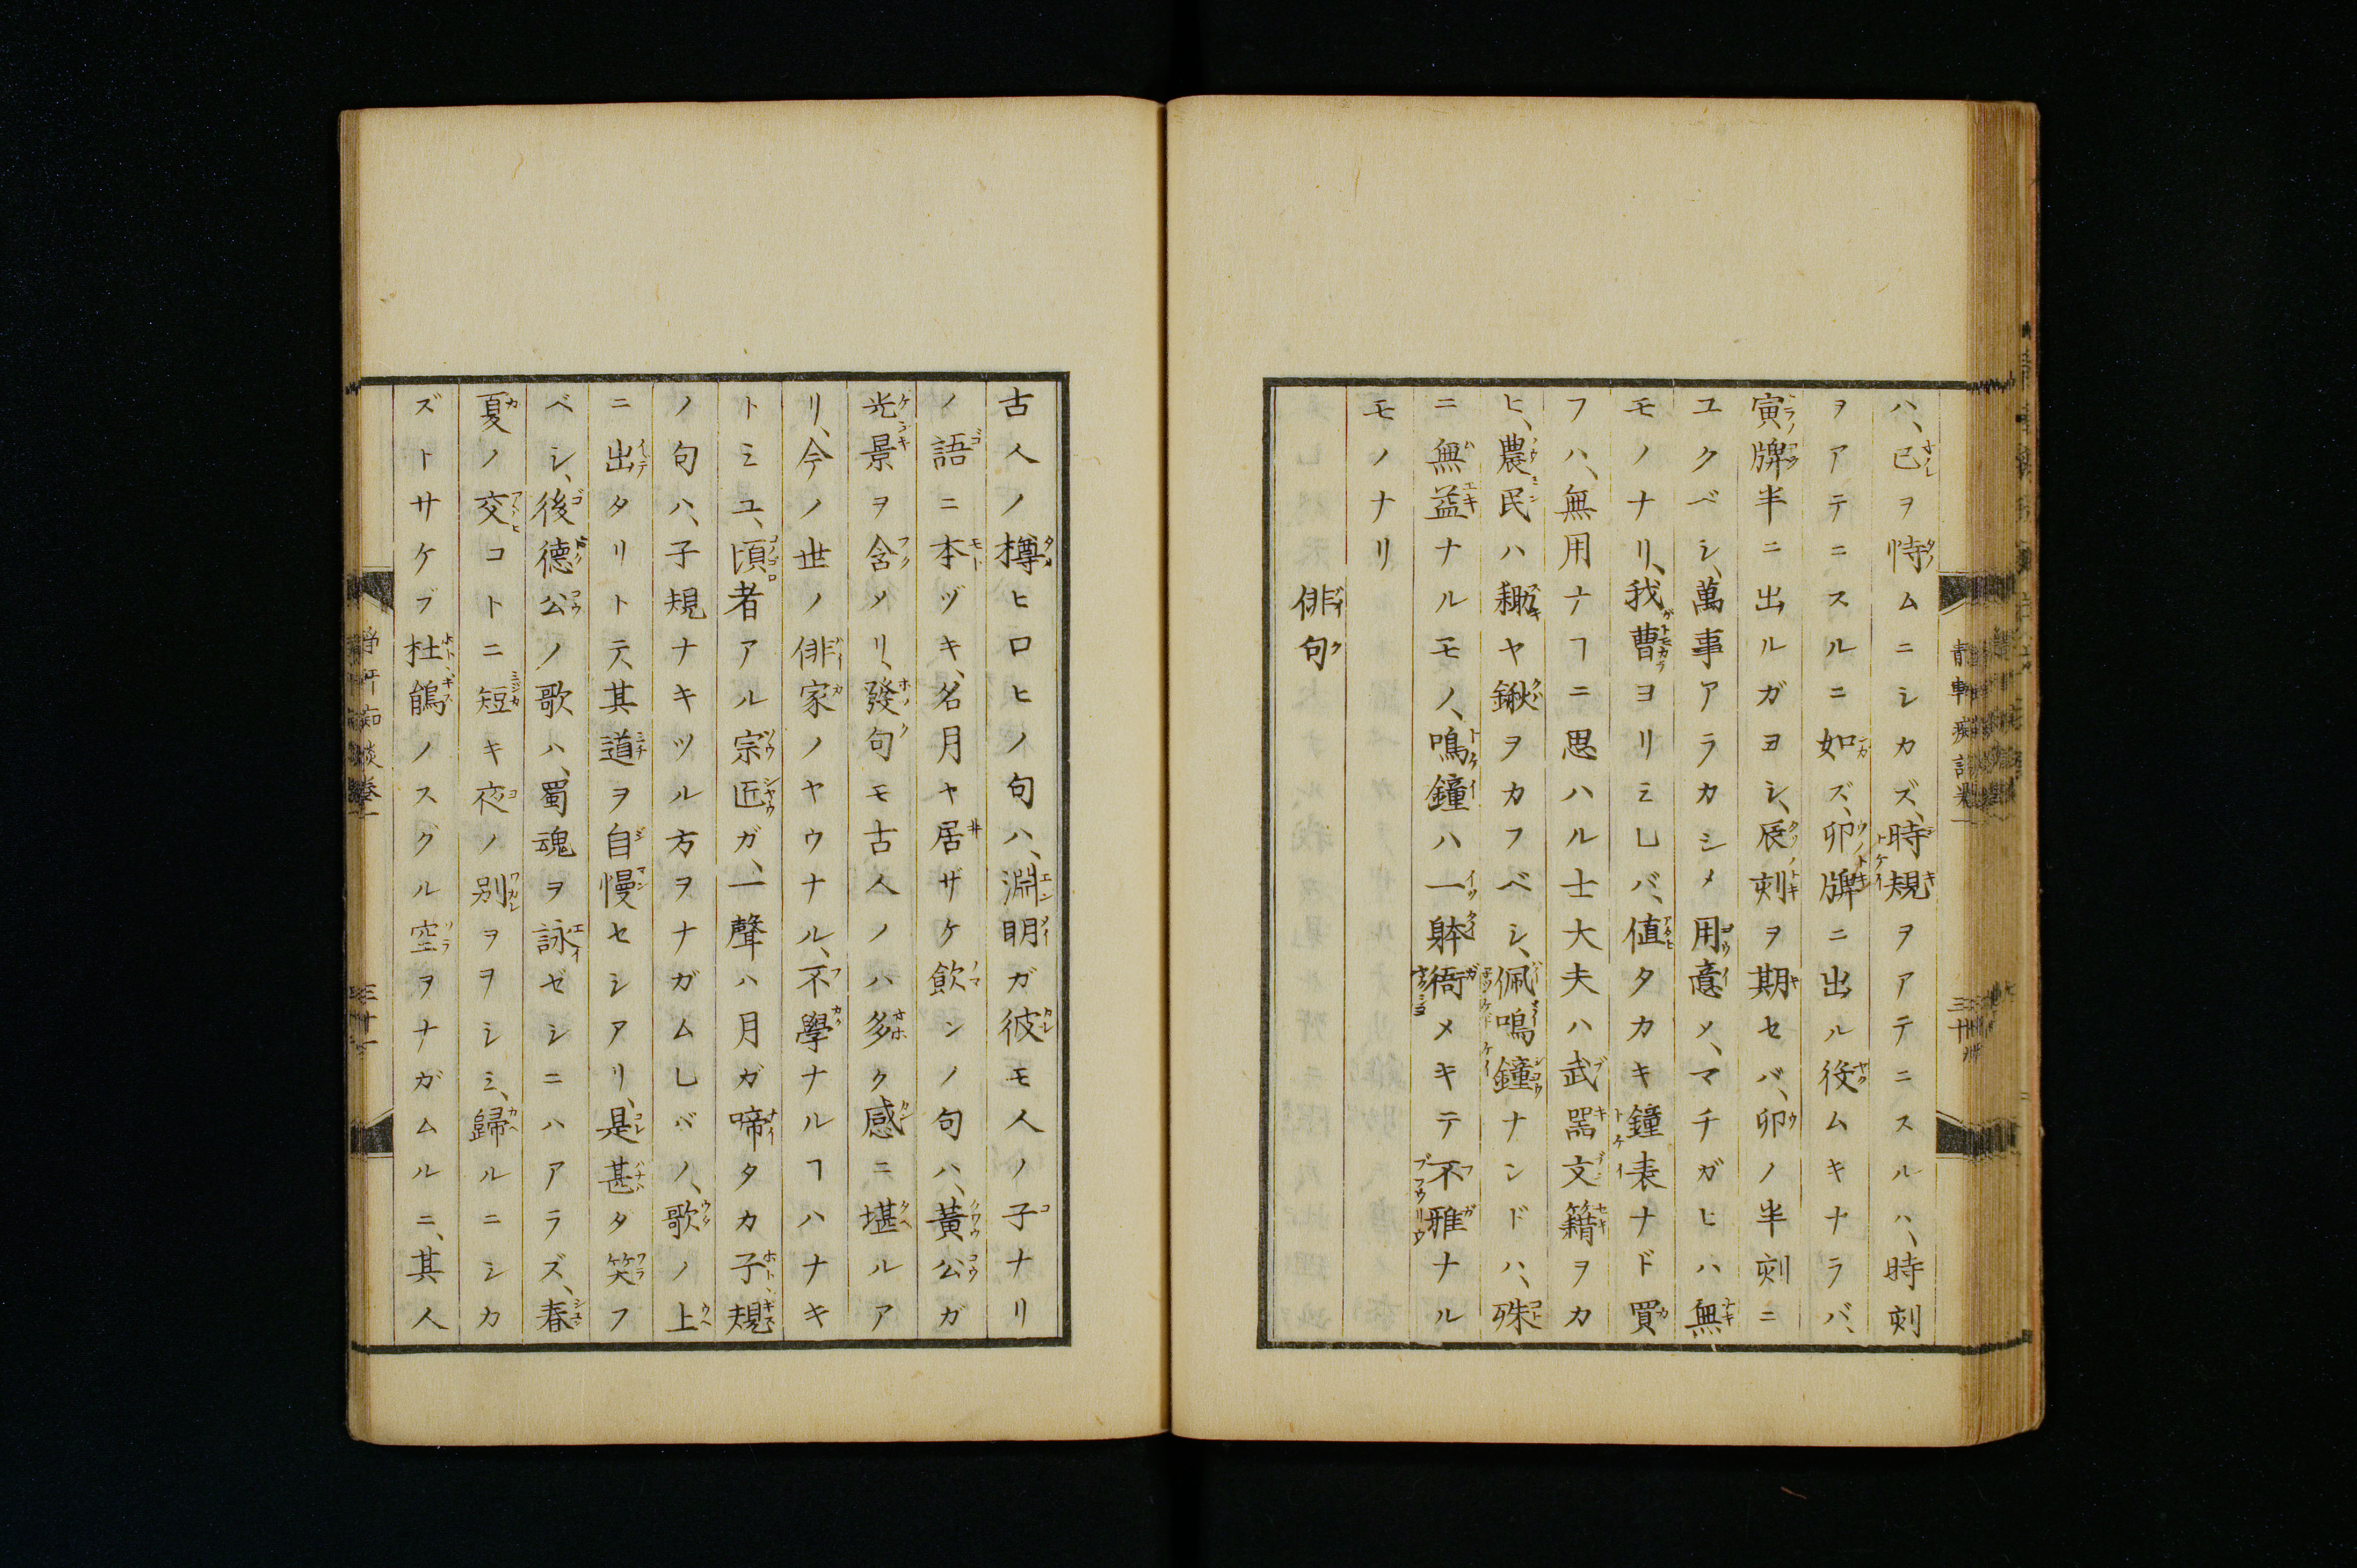 ハ、已ヲ恃ムニシカズ、時規ヲアテニスルハ、時刻
ヲアテニスルニ如ズ、卯牌ニ出ル役ムキナラバ、
寅牌半ニ出ルガヨシ、辰刻ヲ期セバ、卯ノ半刻ニ
ユクベシ、萬事アラカシメ用意メ、マチガヒハ無
モノナリ、我曹ヨリミレバ、値タカキ鐘表ナド買
フハ、無用ナヿニ思ハル士大夫ハ武器文籍ヲカ
ヒ、農民ハ耡ヤ鍬ヲカフベシ、佩鳴鐘ナンドハ、殊
ニ無益ナルモノ、鳴鐘ハ一躰衙メキテ不雅ナル
モノナリ
俳句
古人ノ樽ヒロヒノ句ハ、淵明ガ彼モ人ノ子ナリ
ノ語ニ本ヅキ、名月ヤ居ザケ飲ンノ句ハ、黄公ガ
光景ヲ含メリ、發句モ古人ノハ多ク感ニ堪ルア
リ、今ノ世ノ俳家ノヤウナル、不學ナルヿハナキ
トミユ、頃者アル宗匠ガ、一聲ハ月ガ啼タカ子規
ノ句ハ、子規ナキツル方ヲナガムレバノ、歌ノ上
ニ出タリトテ、其道ヲ自慢セシアリ、是甚タ笑フ
ベシ、後德公ノ歌ハ、蜀魂ヲ詠ゼシニハアラズ、春
夏ノ交コトニ短キ夜ノ別ヲヲシミ、歸ルニシカ
ズトサケブ杜鵑ノスグル空ヲナガムルニ、其人